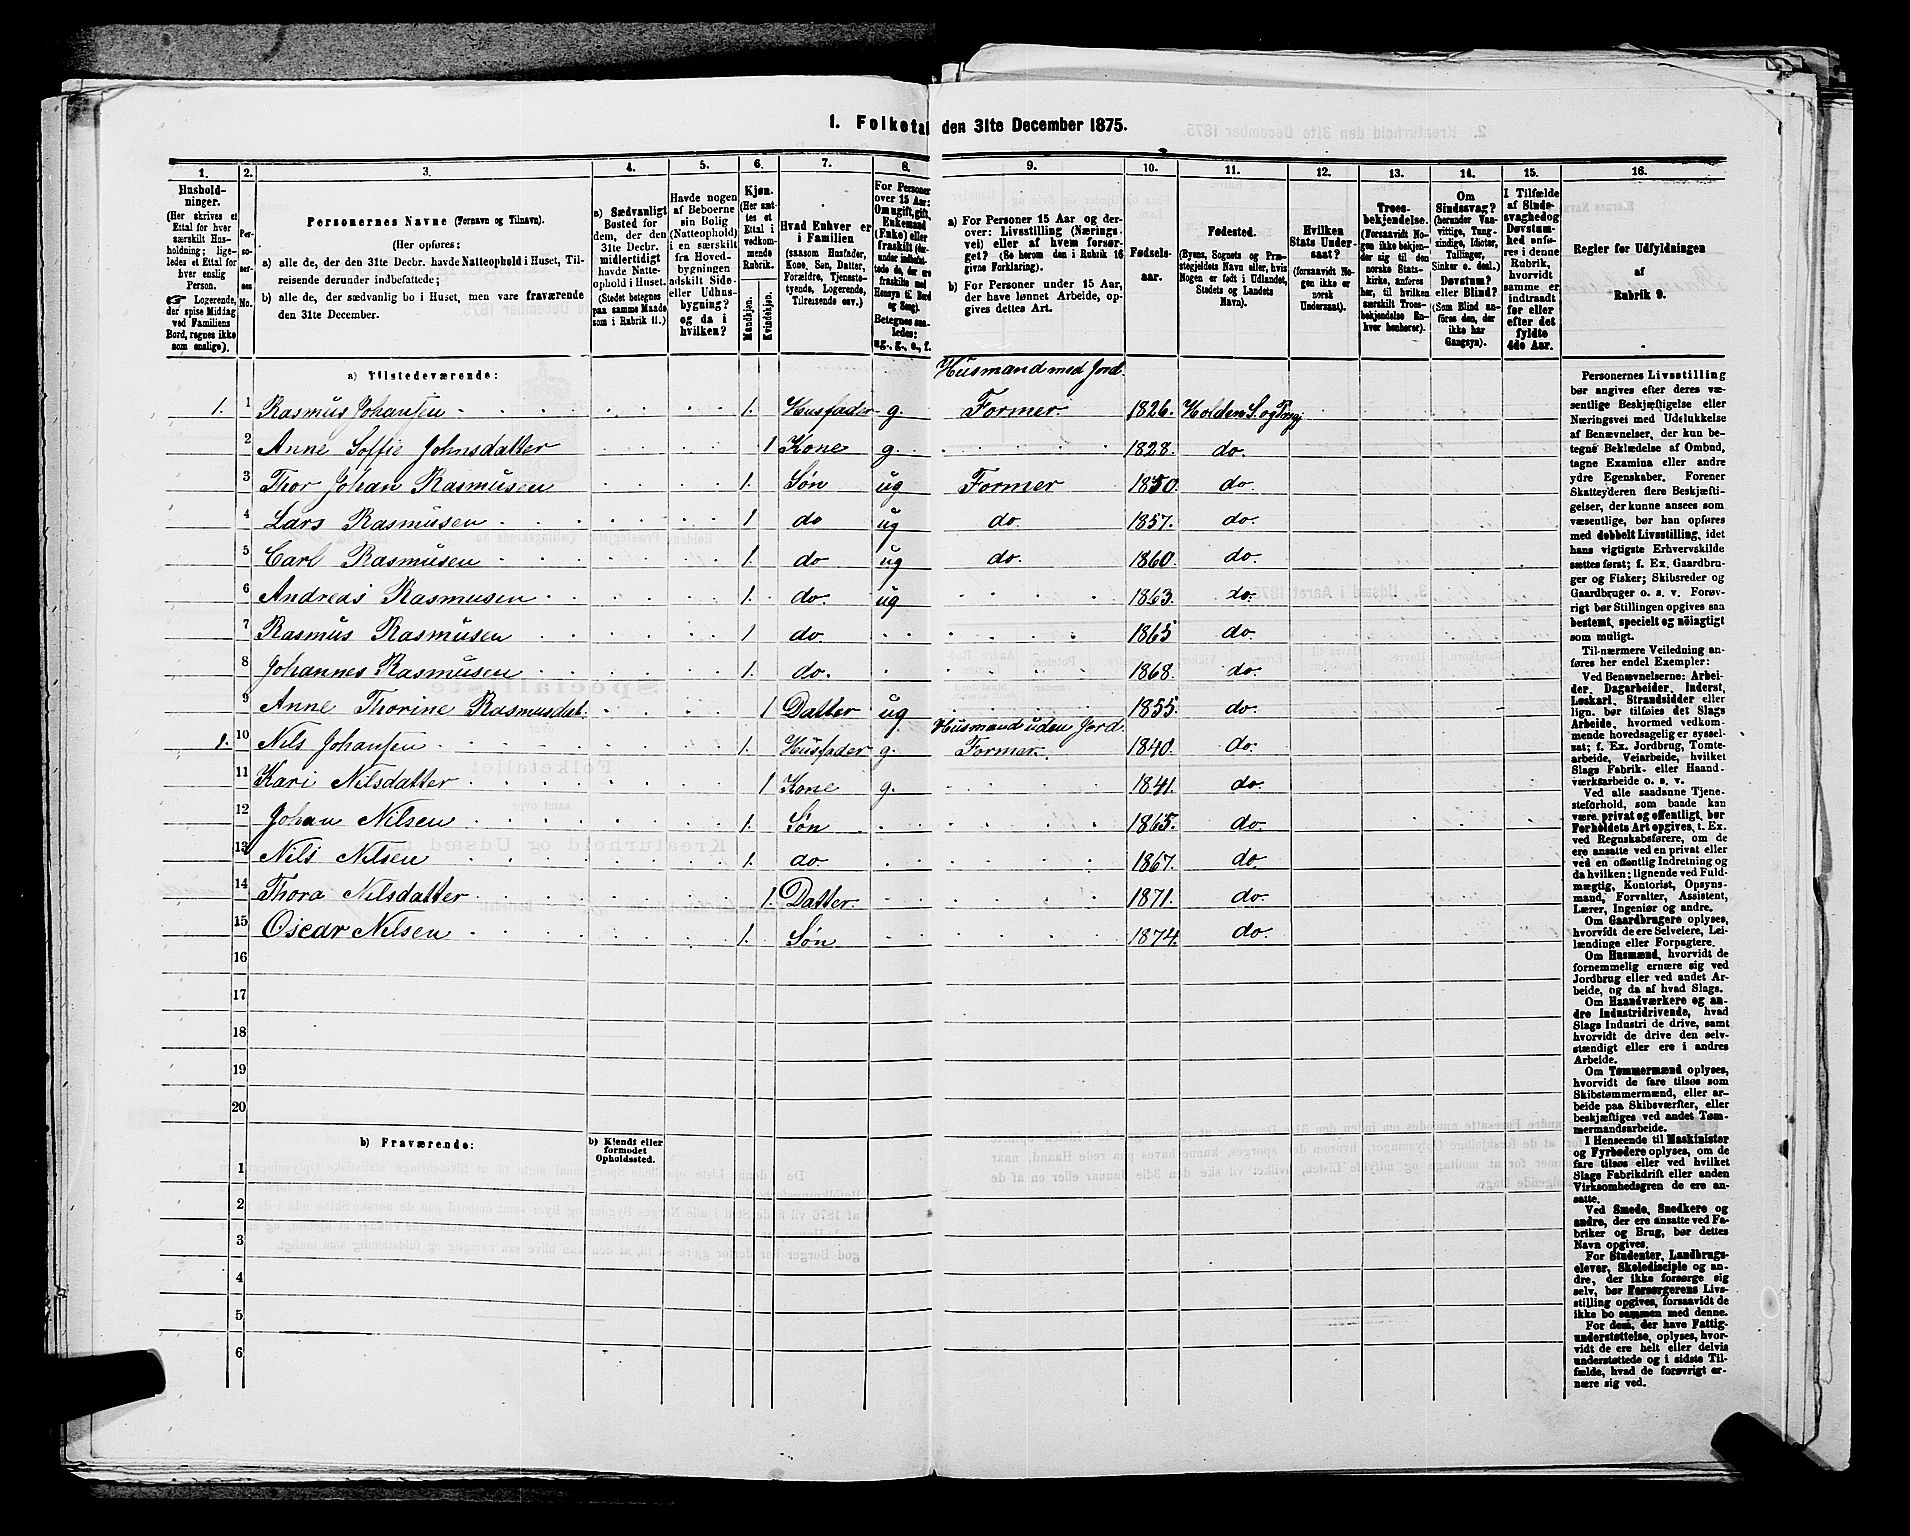 1. Folketal den 31te December 1875.
1. 2. 3. 4. 5. 6. 7. 8. 9. 10. 11. 12. 13. 14. 15. 16.
Hushold-
ninger.
(Her skrives et
Ettal for hver
særskilt Hus-
holdning; lige-
ledes et Ettal for
hver enslig
Person.
☞ Logerende,
der spise Middag
ved Familiens
Bord, regnes ikke
som enslige).
Per-
so-
ner-
nes
No.
Personernes Navne (Fornavn og Tilnavn).
(Her opføres:
a) alle de, der den 31te Decbr. havde Natteophold i Huset, Til-
reisende derunder indbefattede;
b) alle de, der sædvanlig bo i Huset, men vare fraværende
den 31te December.
a) Sædvanligt
Bosted for
dem, der den
31te Decbr.
midlertidigt
havde Natte-
ophold i Huset.
(Stedet betegnes
paa samme Maade
som i Rubrik 11.)
Havde nogen
af Beboerne
sin Bolig
(Natteophold)
i en særskilt
fra Hoved-
bygningen
adskilt Side-
eller Udhus-
bygning?
og da i
hvilken?
Kjøn.
(Her sæt-
tes et
Ettal i
vedkom-
mende
Rubrik.
Mandkjøn.
Kvindekjøn.
Hvad Enhver er
i Familien
(saasom Husfader,
Kone, Søn, Datter,
Forældre, Tjeneste-
tyende, Logerende,
Tilreisende osv.)
For Personer
over 15 Aar:
Om ugift, gift,
Enkemand
(Enke) eller
fraskilt
Betegnes saa-
ledes:
ug., g., e., f.
a) For Personer 15 Aar og der-
over: Livsstilling (Nærings-
vei) eller af hvem forsør-
get? (Se herom den i Rubrik 16
givne Forklaring).
b) For Personer under 15 Aar,
der have lønnet Arbeide, op-
gives dettes Art.
Fødsels-
aar.
Fødested.
(Byens, Sognets og Præ-
stegjeldets Navn eller, hvis
Nogen er født i Udlandet,
Stedets og Landets
Navn).
Hvilken
Stats Under-
saat?
(forsaavidt No-
gen ikke er
norsk
Undersaat).
Troes-
bekjendelse.
(Forsaavidt No-
gen ikke bekjen-
der sig til den
norske Stats-
kirke, anføres
her, til hvilken
særskilt Troes-
bekjendelse En-
hver henhører).
Om
Sindssvag?
(herunder Van-
vittige, Tung-
sindige, Idioter,
Tullinger,
Sinker o. desl.)
Døvstum?
eller Blind?
(Som Blind an-
føres den, der
ikke har
Gangsyn).
I Tilfælde
af Sinds-
svaghed og
Døvstum-
hed anfø-
res i denne
Rubrik,
hvorvidt
samme er
indtraadt
før eller
efter det
fyldte
4de Aar.
Regler for Udfyldningen
af
Rubrik 9.
a) Tilstedeværende:
Husmand med Jord.
1. 1 Rasmus Johansen 1. Husfader g. Former. 1826. Holden S. og Prgj
2 Anne Soffie Johnsdatter 1 Kone g. 1828. do.
3 Thor Johan Rasmusen 1. Søn ug Former 1850. do.
4 Lars Rasmusen 1 do ug do. 1857. do.
5 Carl Rasmusen 1 do ug do. 1860. do.
6 Andreas Rasmusen 1. do. ug 1863. do.
7 Rasmus Rasmusen 1 do. 1865 do.
8 Johannes Rasmusen 1. do. 1868. do.
9 Anne Thorine Rasmusdat. 1 Datter ug. 1855. do.
Husmand uden Jord.
1. 10 Nils Johansen 1. Husfader g. Former. 1840. do.
11 Kari Nilsdatter 1 Kone g. 1841. do.
12 Johan Nilsen 1. Søn 1865. do.
13 Nils Nilsen 1. do 1867. do
14 Thora Nilsdatter 1. Datter. 1871. do.
15 Oscar Nilsen 1. Søn 1874. do.
16
17
18
19
20
b) Fraværende:
b) Kjendt eller
formodet
Opholdssted.
1
2
3
4
5
6
Personernes Livsstilling
bør angives efter deres væ-
sentlige Beskjæftigelse eller
Næringsvei med Udelukkelse
af Benævnelser, der kun be-
tegne Beklædelse af Ombud,
tagne Examina eller andre
ydre Egenskaber. Forener
Skatteyderen flere Beskjæfti-
gelser, der kunne ansees som
væsentlige, bør han opføres
med dobbelt Livsstilling, idet
hans vigtigste Erhvervskilde
sættes først; f. Ex. Gaardbru-
ger og Fisker; Skibsreder og
Gaardbruger o. s. v. Forøv-
rigt bør Stillingen opgives saa
bestemt, specielt og nøiagtigt
som muligt.
Til nærmere Veiledning an-
føres her endel Exempler:
Ved Benævnelserne: Arbei-
der, Dagarbeider, Inderst,
Løskarl, Strandsidder eller
lign. bør tilføies det Slags
Arbeide, hvormed vedkom-
mende hovedsagelig er syssel-
sat; f. Ex. Jordbrug, Tomte-
arbeide, Veiarbeide, hvilket
Slags Fabrik- eller Haand-
værksarbeide o. s. v.
Ved alle saadanne Tjene-
steforhold, som baade kan
være privat og offentligt, bør
Forholdets Art opgives, t. Ex.
ved Regnskabsførere, om de
ere ansatte ved en privat eller
ved en offentlig Indretning og
da hvilken; lignende ved Fuld-
mægtig, Kontorist, Opsyns-
mand, Forvalter, Assistent,
Lærer, Ingeniør og andre.
Om Gaardbrugere oplyses,
hvorvidt de ere Selveiere, Lei-
lændinge eller Forpagtere.
Om Husmænd, hvorvidt de
fornemmelig ernære sig ved
Jordbrug eller ved andet Ar-
beide, og da af hvad Slags.
Om Haandværkere og an-
dre Industridrivende, hvad
Slags Industri de drive, samt
hvorvidt de drive den selv-
stændigt eller ere i andres
Arbeide.
Om Tømmermænd oplyses,
hvorvidt de fare tilsøs som
Skibstømmermænd, eller ar-
beide paa Skibsværfter, eller
beskjæftiges ved andet Tøm-
mermandsarbeide.
I Henseende til Maskinister
og Fyrbødere oplyses, om de
fare tilsøs eller ved hvilket
Slags Fabrikdrift eller anden
Virksomhedsgren de ere an-
satte.
Ved Smede, Snedkere og
andre, der ere ansatte ved Fa-
briker og Brug, bør dettes
Navn opgives.
For Studenter, Landbrugs-
elever, Skoledisciple og an-
dre, der ikke forsørge sig
selv, bør Forsørgerens Livs-
stilling opgives, forsaavidt de
ikke bo sammen med denne.
For dem, der have Fattig-
understøttelse, oplyses, hvor-
vidt de ere helt eller delvis
understøttede og i sidste Til-
fælde, hvad de forøvrigt er-
nære sig ved.